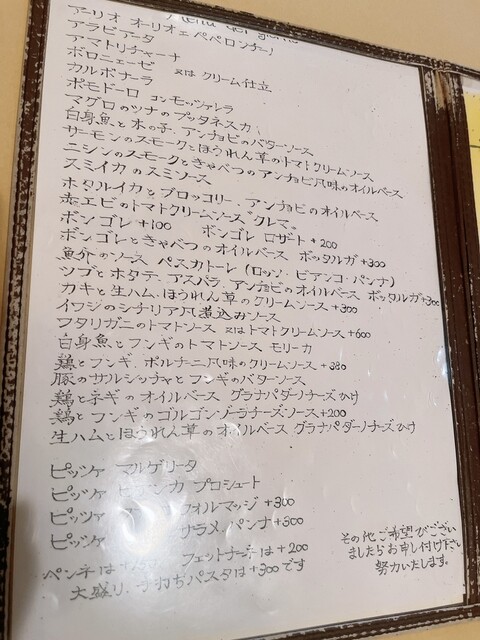 Menu del giorno
アーリオ オーリオ エ ペペロンチーノ
アラビアータ
アマトリチャーナ
ボロニェーゼ 又は クリーム仕立
カルボナーラ
ポモドーロ コンモッツァレラ
マグロのツナのプッタネスカ
白身魚と木の子、アンチョビのバターソース
サーモンのスモークとほうれん草のトマトクリームソース
ニシンのスモークときゃべつのアンチョビ風味のオイルベース
スミイカのスミソース
ホタルイカとブロッコリー、アンチョビのオイルベース
赤エビのトマトクリームソース"クレマ"
ボンゴレ +100 ボンゴレ ロザート +200
ボンゴレときゃべつのオイルベース ボッタルガ +300
魚介のソース ペスカトーレ (ロッソ・ビアンコ・パンナ)
ツブとホタテ、アスパラ、アンチョビのオイルベース ボッタルガ+300
カキと生ハム、ほうれん草のクリームソース +300
イワシのシチリア風煮込みソース
フタリガニのトマトソース 又はトマトクリームソース +600
白身魚とフンギのトマトソース モリーカ
鶏とフンギ、ポルチーニ風味のクリームソース +380
豚のサルシッチャとフンギのバターソース
鶏とネギのオイルベース グラナパダーノチーズがけ
鶏とフンギのゴルゴンゾーラチーズソース +200
生ハムとほうれん草のオイルベース グラナパダーノチーズがけ
ピッツァ マルゲリータ
ピッツァ ビアンカ プロシュート
ピッツァ フォルマッジ +300
ピッツァ サラメ、パンナ +300
ペンネは フェットチーネは +200
大盛り、手打ちパスタは +300です
その他ご希望がござい
ましたらお申し付け下さい
努力いたします。